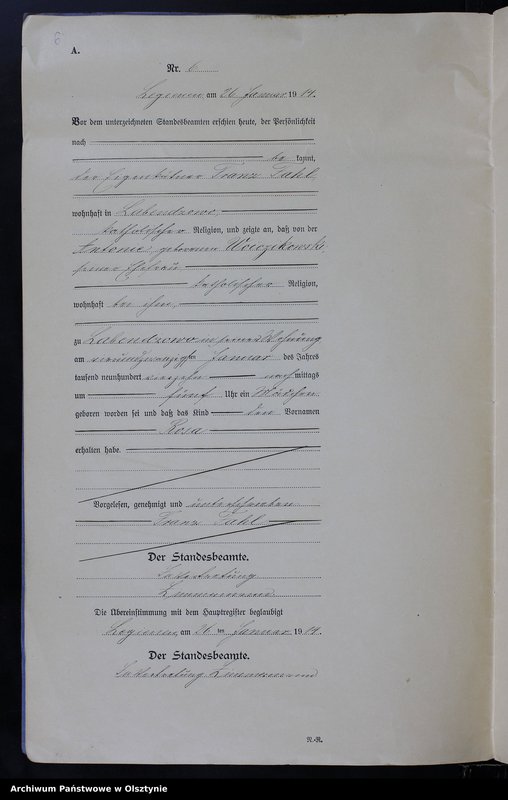 6
A.
Nr. 6
am 26 Januar 1914.
Vor dem unterzeichneten Standesbeamten erschien heute, der Persönlichkeit
nach
be kannt,
der Eigentümer Franz Pahl
wohnhaft in
katholischer Religion, und zeigte an, daß von der
Antonie, geborenen
seiner Ehefrau
katholischer Religion,
wohnhaft bei ihm,
zu in seiner Wohnung
am ten Januar des Jahres
tausend neunhundert vierzehn nachmittags
um fünf Uhr ein Mädchen
geboren worden sei und daß das Kind den Vornamen
Rosa
erhalten habe.
Vorgelesen, genehmigt und unterschrieben
Franz Pahl
Der Standesbeamte.
In Vertretung
Die Übereinstimmung mit dem Hauptregister beglaubigt
am 26 ten Januar 1914.
Der Standesbeamte.
In Vertretung
A.-R.
Archiwum Państwowe w Olsztynie